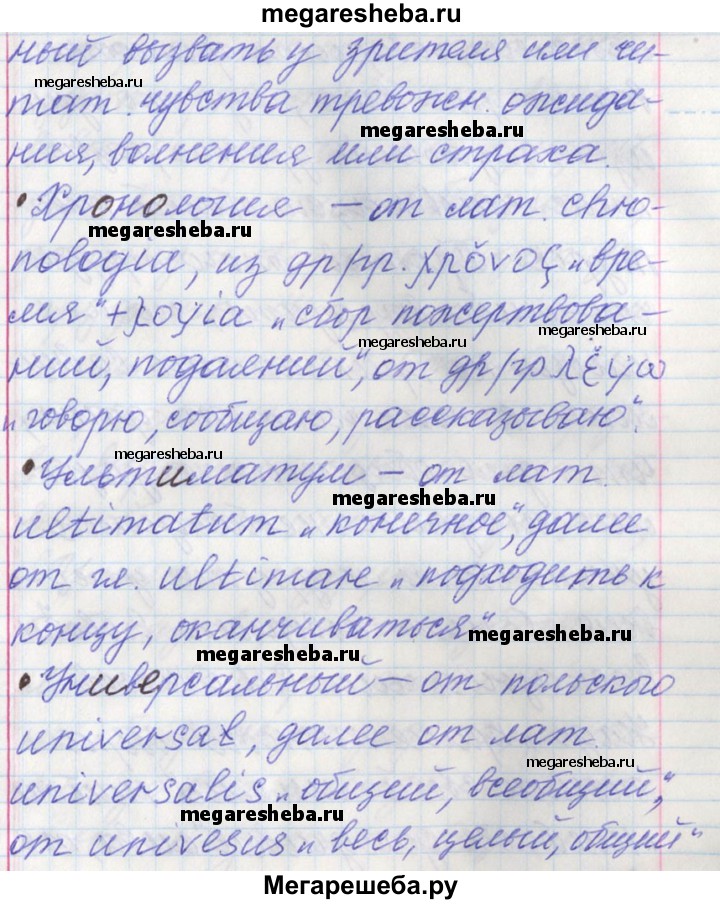 megaresheba.ru
ный вызвать у зрителя или чи-
megaresheba.ru
тат. чувства тревожн. ожида-
megaresheba.ru
ния, волнения или страха.
• Хронология – от лат. chro-
megaresheba.ru
nologia, из др/гр. χρόνος „вре-
мя“ + λογία „сбор пожертвова-
megaresheba.ru
megaresheba.ru
ний, подаяний“, от др/гр λέγω
„говорю, сообщаю, рассказываю“.
megaresheba.ru
• Ультиматум – от лат.
megaresheba.ru
ultimatum „конечное“, далее
от гл. ultimare „подходить к
megaresheba.ru
концу, оканчиваться“
megaresheba.ru
• Универсальный – от польского
uniwersał, далее от лат.
megaresheba.ru
universalis „общий, всеобщий“,
megaresheba.ru
от univesus „весь, целый, общий“
Мегарешеба.ру